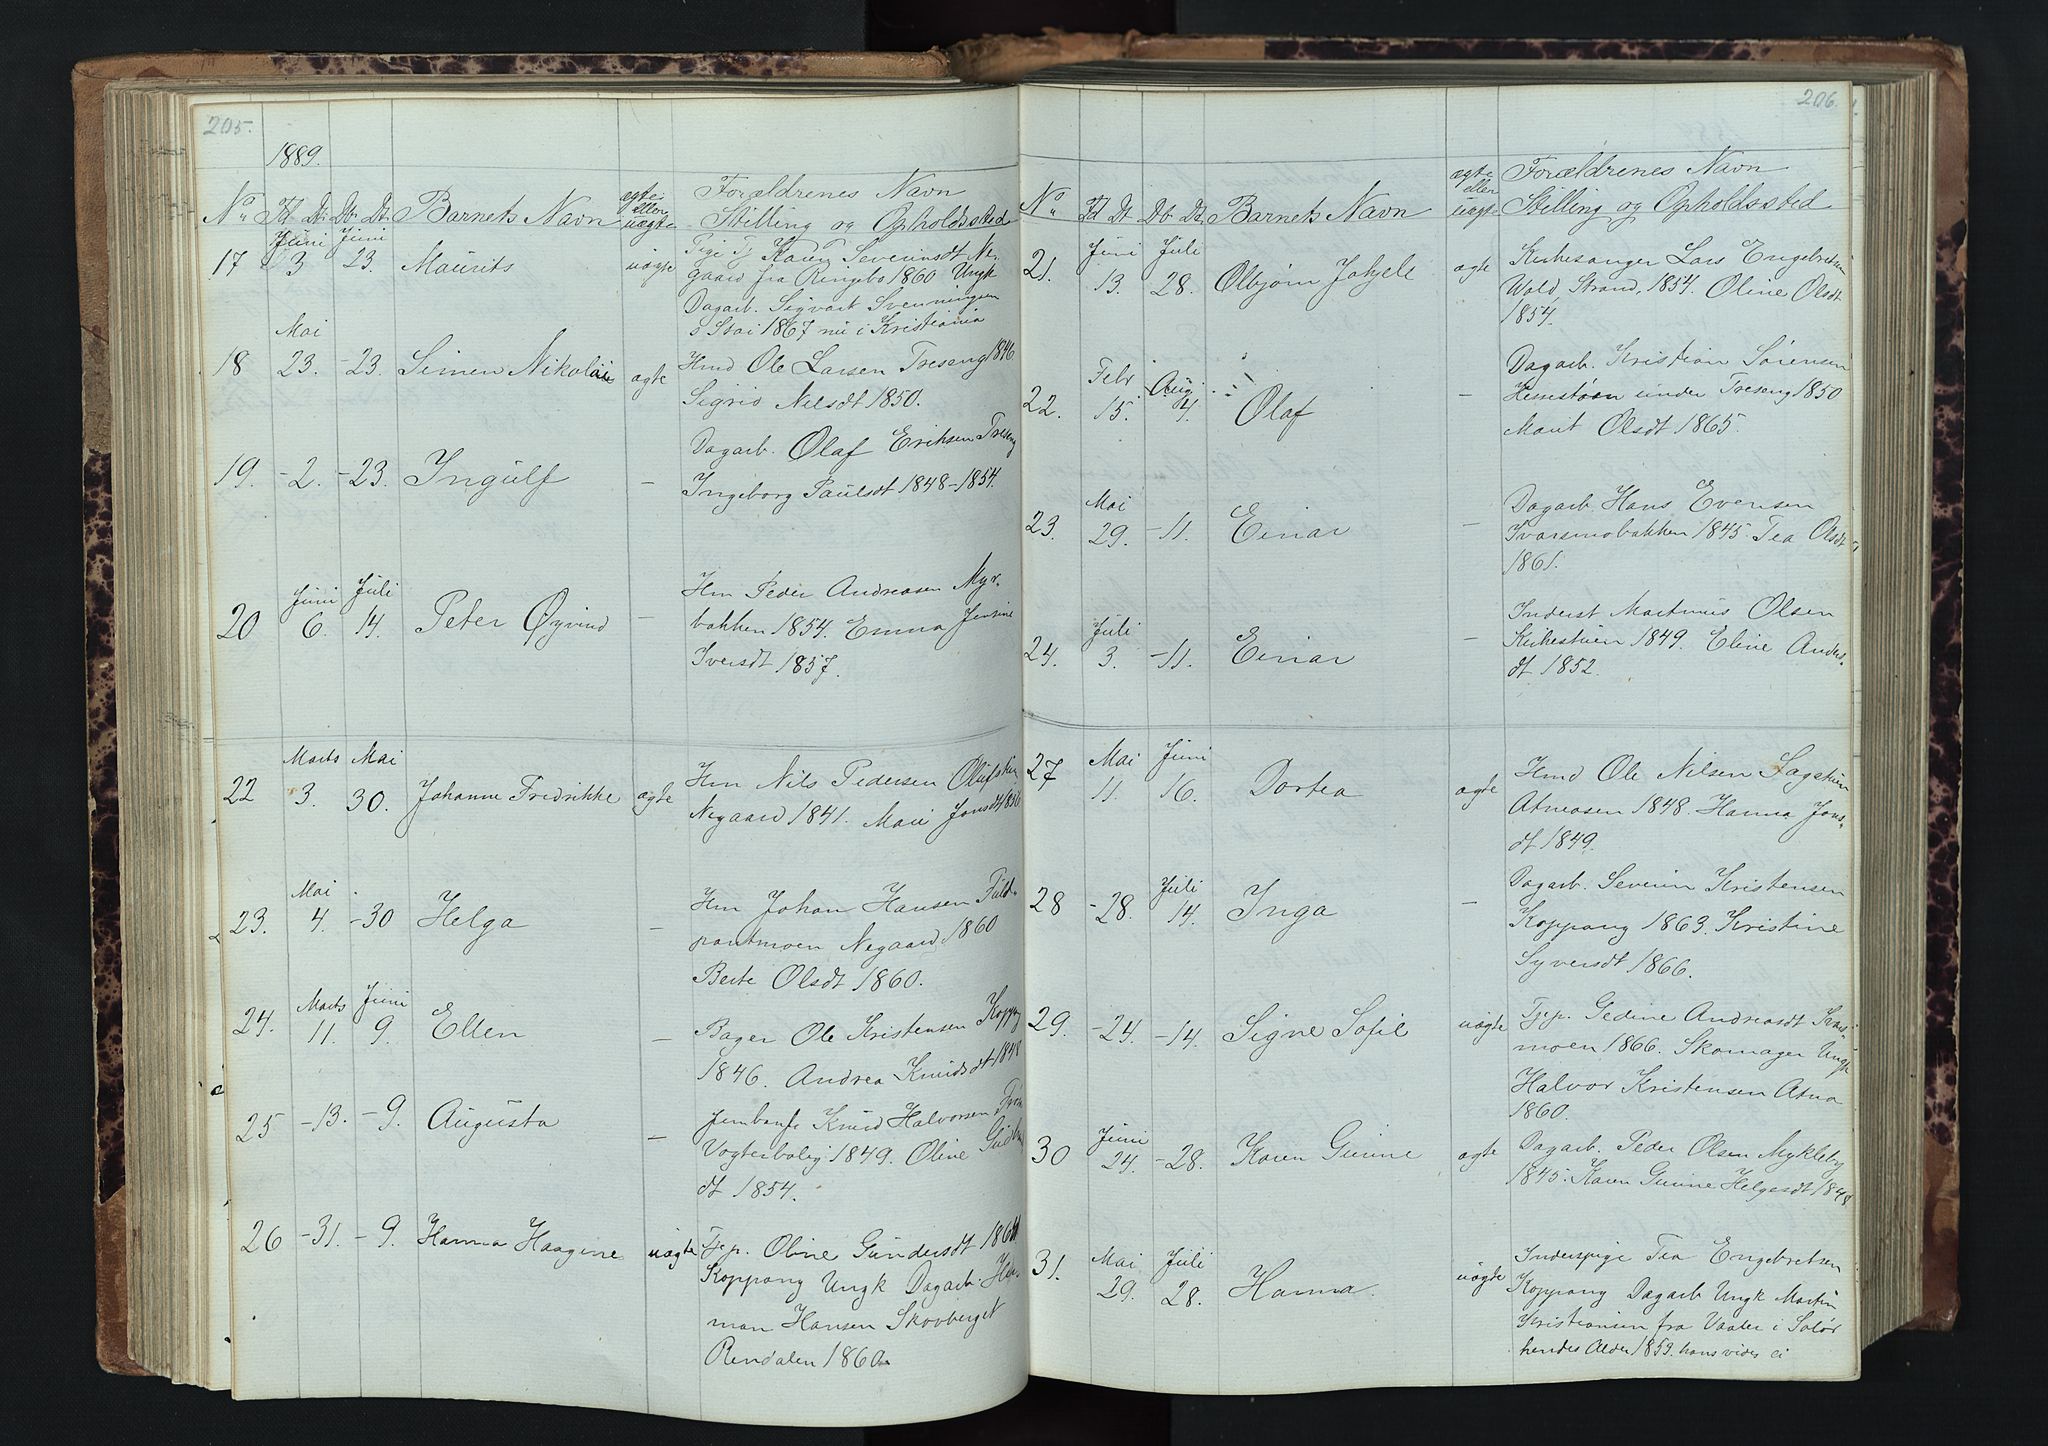 205.
1889.
No Fd Dt. Db. Dt. Barnets Navn ægte eller uægte Forældrenes Navn
Stilling og Opholdssted
17 Juni 3 Juni 23. Maurits uægte Pige Tj Karen Severinsdt Ne-
gaard fra Ringebo 1860 Ungk
Dagarb. Sigvart Svenningsen
Stai 1867 nu i Kristiania
18 Mai 23. -23. Simen Nikolai ægte Hmd Ole Larsen Treseng 1846
Sigrid Nilsdt 1850.
19. -2. -23. Ingulf - Dagarb. Olaf Eriksen Treseng
Ingeborg Paulsdt 1848-1854.
20 Juni 6. Juli 14. Peter Øyvind - Hm Peder Andreasen Myr-
bakken 1854. Emma Jensine
Iversdt 1857.
22 Marts 3. Mai 30. Johanne Fredrikke ægte Hm Nils Pedersen
Negaard 1841. Mari Jonsdt 1856
23. Mai 4. -30 Helga - Hm Johan Hansen Fuld-
partmoen Negaard 1860
Berte Olsdt 1860.
24. Marts 11. Juni 9. Ellen - Bager Ole Kristensen Koppang
1846. Andrea Knudsdt 1848
25 -13. -9. Augusta - Jernbanef. Knud Halvorsen
Vogterbolig 1849. Oline
dt 1854.
26 -31. -9. Hanna Haagine uægte Tjp. Oline Gundersdt
Koppang Ungk Dagarb. Her-
man Hansen Skovberget
Rendalen 1860.
206.
No Fd Dt. Db. Dt. Barnets Navn ægte eller uægte Forældrenes Navn
Stilling og Opholdssted
21. Juni 13. Juli 28. Olbjørn Jakjele ægte Kirkesanger Lars Engebretsen
Wold, Strand, 1854. Oline Olsdt
1854.
22. Febr 15. Aug. 4. Olaf - Dagarb. Kristian Sørensen
under Treseng 1850
Marit Olsdt 1865.
23. Mai 29. -11. Einar - Dagarb. Hans Evensen
Ivarsmobakken 1845. Tea Olsdt
1861.
24. Juli 3. -11. Einar - Inderst Martinus Olsen
Kirkestuen 1849. Eline Anders-
dt 1852.
27 Mai 11. Juni 16. Dortea ægte Hmd Ole Nilsen Sagstuen
Atneosen 1848. Hanna Jons-
dt 1849.
28 -28. Juli 14. Inga - Dagarb. Severin Kristensen
Koppang 1863. Kristine
Syversdt 1866.
29. -24. -14. Signe Sofie uægte Tjp. Gedine Andreasdt
moen 1866. Skomager Ungk
Halvor Kristensen Atna
1860.
30 Juni 24. -28. Karen Gunne ægte Dagarb. Peder Olsen Mykleby
1845. Karen Gunne Helgesdt 1848
31. Mai 29. Juli 28. Hanna. uægte Inderspige Tea Engebretsen
Koppang Dagarb Ungk Martin
Kristiansen fra Vaaler i Solør
hendes Alder 1859. hans vides ei